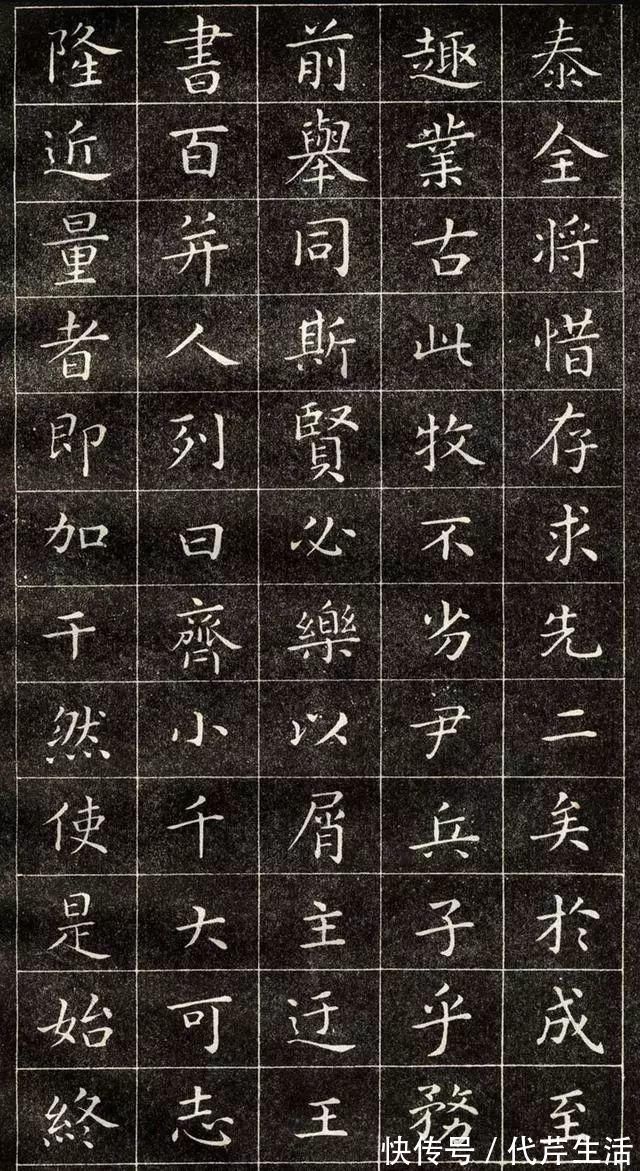 泰全将惜存求先二矣於成至
趣業古此牧不劣尹兵子乎務
前舉同斯賢必樂以屑主迂王
書百并人列曰齊小千大可志
隆近量者即加于然使是始終
快传号/代芹生活